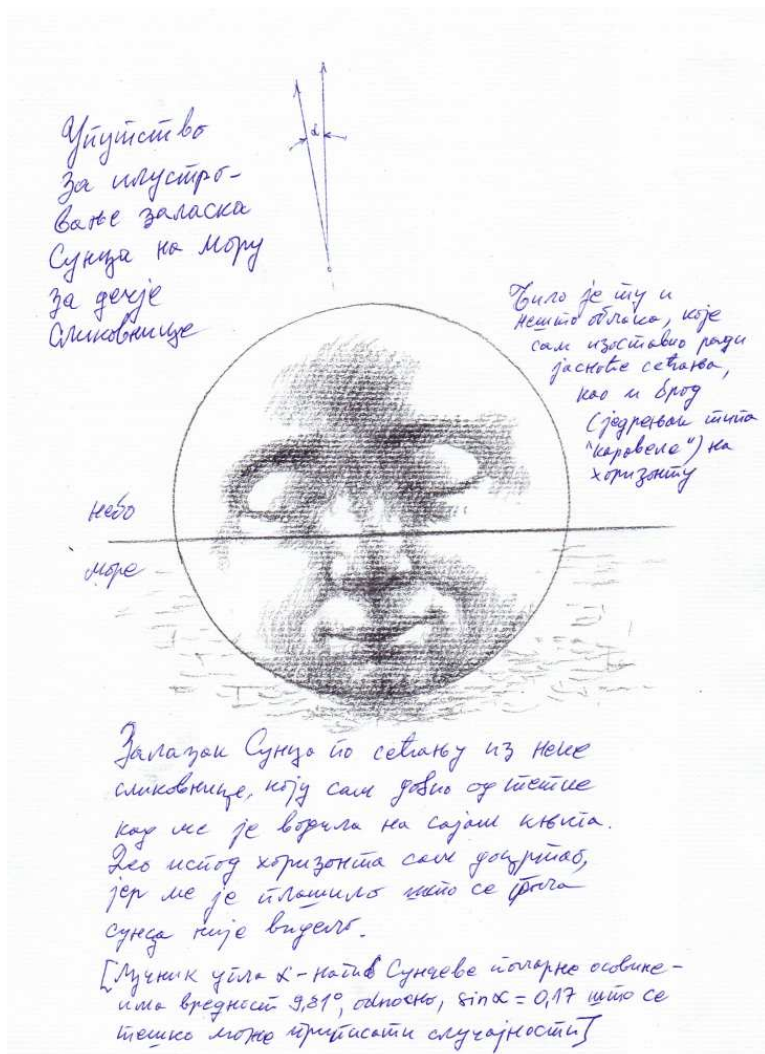 Упутство
за илустро-
вање заласка
Сунца на мору
за дечје
сликовнице
α
Било је ту и
нешто облака, које
сам изоставио ради
јасноће сећања,
као и брод
(једрењак типа
"каравела") на
хоризонту
небо
море
Залазак Сунца по сећању из неке
сликовнице, коју сам добио од тетке
кад ме је водила на сајам књига.
Део испод хоризонта сам доцртао,
јер ме је плашило што се пола
сунца није видело.
[Лучник угла α - нагиб Сунчеве поларне осовине -
има вредност 9,81°, односно, sinα = 0,17 што се
тешко може приписати случајности]